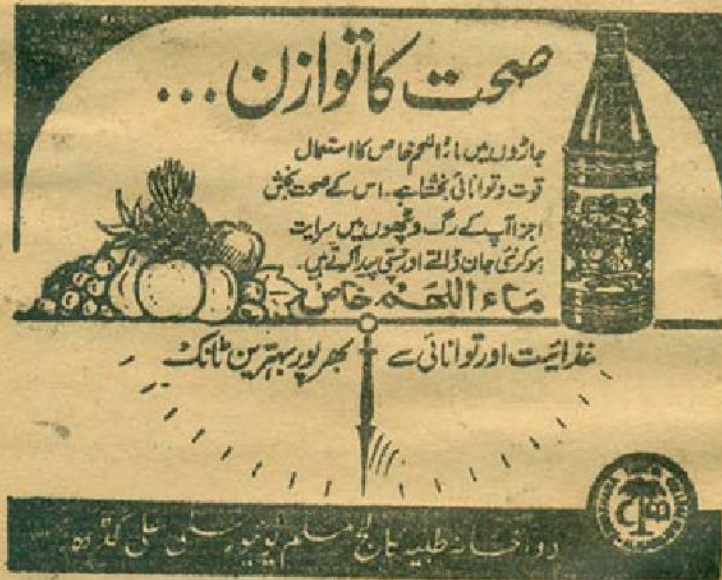 صحت کا توازن...
جاڑوں میں ماءاللحم خاص کا استعمال
قوت و توانائی بخشتا ہے۔ اس کے صحت بخش
اجزا آپ کے رگ و پٹھوں میں سرایت
ہو کر نئی جان ڈالتے اور چستی پیدا کرتے ہیں۔
ماء اللحم خاص
غذائیت اور توانائی سے بھرپور بہترین ٹانک
دواخانہ طبیہ کالج مسلم یونیورسٹی علی گڑھ